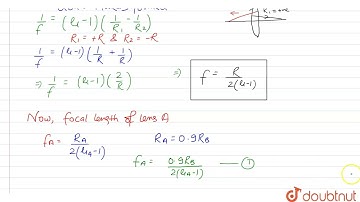 1/f = (μ-1)(1/R₁ - 1/R₂)
R₁ = +R & R₂ = -R
1/f = (μ-1)(1/R + 1/R)
⇒ 1/f = (μ-1)(2/R) ⇒ f = R/2(μ-1)
Now, focal length of lens A
f_A = R_A/2(μ_A-1) R_A = 0.9R_B
f_A = 0.9R_B/2(μ_A-1) — ①
doubtnut